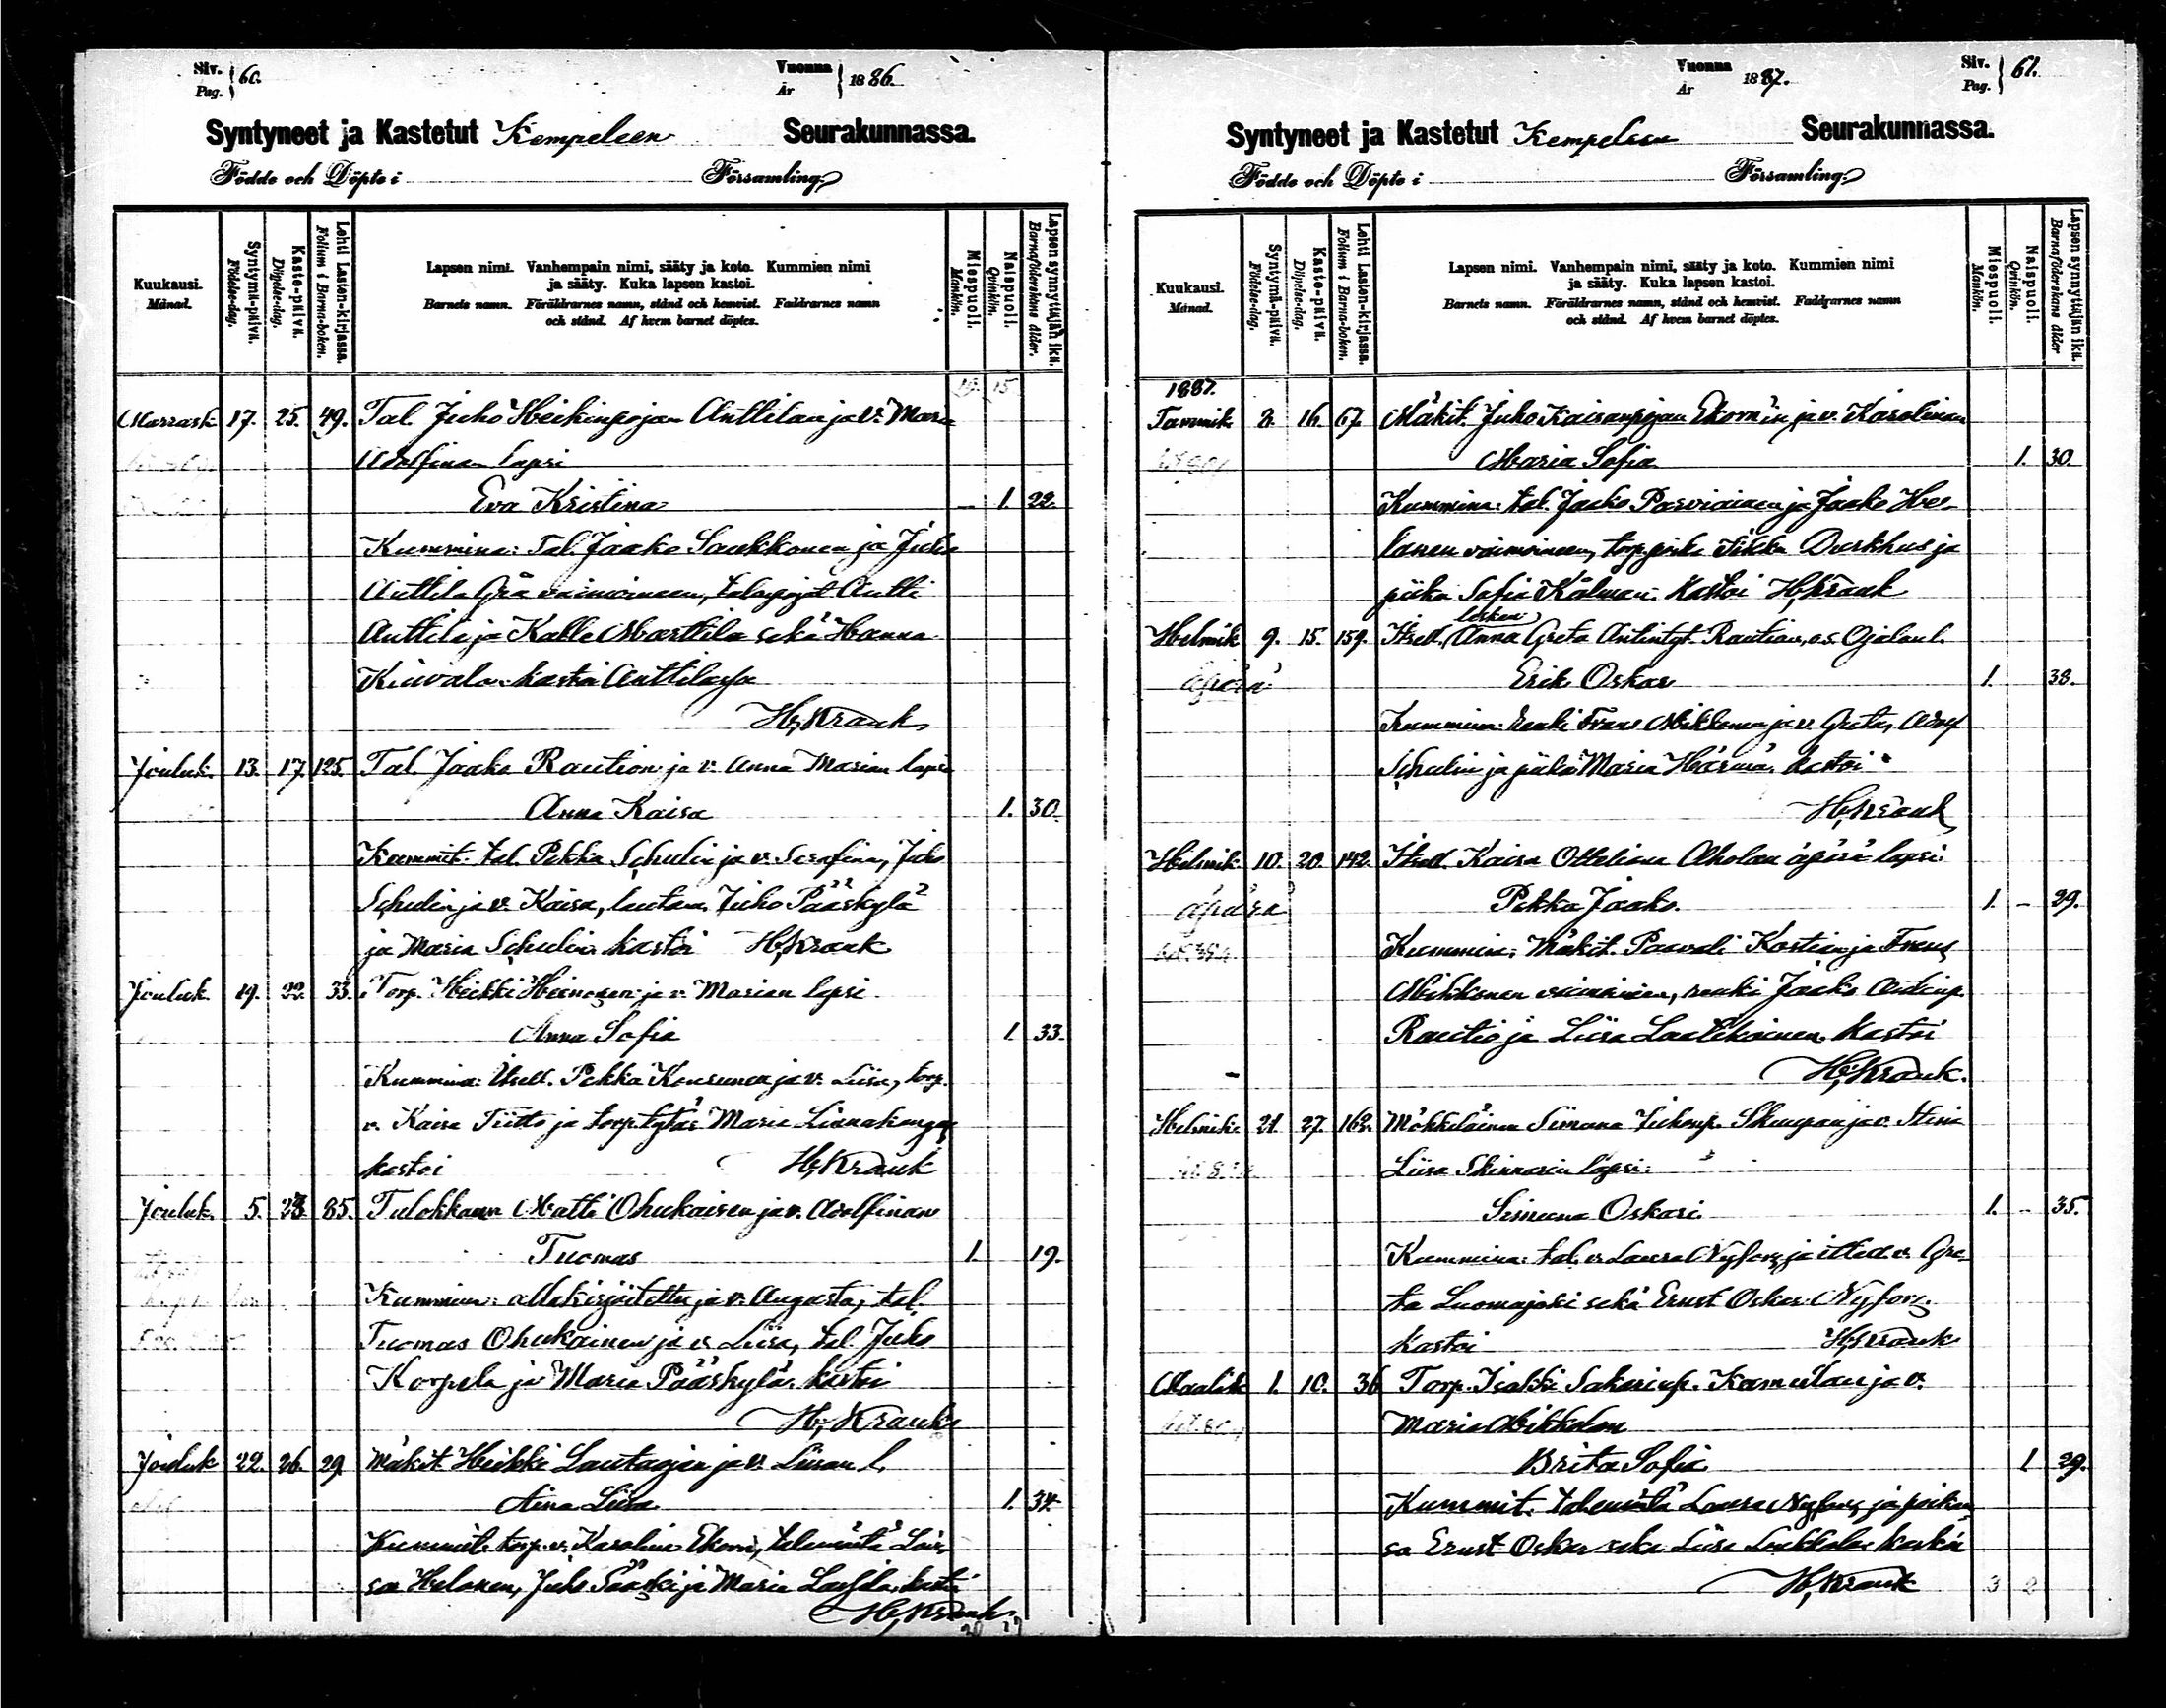 Siv. Pag. 60. Vuonna År 1886.
Syntyneet ja Kastetut Kempeleen Seurakunnassa.
Födde och Döpte i Församling
Kuukausi. Månad.
Syntymä-päivä. Födelse-dag.
Kaste-päivä. Döpelse-dag.
Lehti Lasten-kirjassa. Folium i Barna-boken.
Lapsen nimi. Vanhempain nimi, sääty ja koto. Kummien nimi
ja sääty. Kuka lapsen kastoi.
Barnets namn. Föräldrarnes namn, stånd och hemvist. Faddrarnes namn
och stånd. Af hvem barnet döptes.
Miespuoli. Mankön.
Naispuoli. Qvinkön.
Lapsen synnyttäjän ikä. Barnaföderskans ålder.
Marrask. 17. 25. 49. Tal. Juho Heikinpojan Anttilan ja v. Maria
Adolfinan lapsi
Eva Kristina – 1. 22.
Kummina: Tal. Jaako Saukkonen ja Juho
Anttila vaimoineen, Antti
Anttila ja Kalle Marttila sekä Hanna
kastoi
H. Krank
Jouluk. 13. 17. 125. Tal. Jaako Raution ja v. Anna Marian lapsi
Anna Kaisa 1. 30.
Kummit. tal. Pekka Schulin ja v. Serafina, Juho
Schulin ja v. Kaisa, lautam. Juho Pääskylä
ja Maria Schulin. kastoi H. Krank
Jouluk. 19. 22. 33. Torp. Heikki Heinosen ja v. Marian lapsi
Anna Sofia 1. 33.
Kummina: Itsell. Pekka ja v. Liisa, torp.
v. Kaisa Tiitto ja torp.tytär Maria Linnakangas
kastoi H. Krank
Jouluk. 5. 23. 85. Matti Ohukaisen ja v. Adolfinan
Tuomas 1. 19.
Kummina: allekirjoitettu ja v. Augusta, tal.
Tuomas Ohukainen ja v. Liisa, tal. Juho
Korpela ja Maria Pääskylä. kastoi
H. Krank
Jouluk 22. 26. 29. Mäkit. Heikki ja v. Liisan l.
Aina Liisa 1. 34.
Kummit. torp. v. Karolina Ekorn, talemäntä
Helanen, Juho Sääski ja Maria kastoi
H. Krank
20 27
Vuonna År 1887. Siv. Pag. 61.
Syntyneet ja Kastetut Kempeleen Seurakunnassa.
Födde och Döpte i Församling
Kuukausi. Månad.
Syntymä-päivä. Födelse-dag.
Kaste-päivä. Döpelse-dag.
Lehti Lasten-kirjassa. Folium i Barna-boken.
Lapsen nimi. Vanhempain nimi, sääty ja koto. Kummien nimi
ja sääty. Kuka lapsen kastoi.
Barnets namn. Föräldrarnes namn, stånd och hemvist. Faddrarnes namn
och stånd. Af hvem barnet döptes.
Miespuoli. Mankön.
Naispuoli. Qvinkön.
Lapsen synnyttäjän ikä. Barnaföderskans ålder
1887.
Tammik 16. 67. Mäkit. Juho Kaisanpojan Ekorn'in ja v. Karolinan
Maria Sofia 1. 30.
Kummina: tal. Jaako Parviainen ja Jaako He-
lanen vaimoineen, torp.poika Durkhus ja
piika Sofia Kälman. Kastoi H. Krank
lesken
Helmik 9. 15. 159. Itsell. Anna Greta Antintyt. Raution, o.s. Ojalan l.
äpärä Erik Oskar 1. 38.
Kummina: renki Frans Mikkonen ja v. Greta, Adolf
Schulin ja piika Maria Härmä. kastoi
H. Krank
Helmik. 10. 20. 142. Itsell. Kaisa Ottelian Aholan äpärä lapsi
äpärä Pekka Jaako. 1. – 29.
Kummina: Mäkit. Paavali ja Frans
Mikkonen vaimoineen, renki Jaako
Rautio ja Liisa Laatikainen. Kastoi
H. Krank.
Helmik. 21. 27. 162. Mökkiläinen Simuna Juhonp. ja v. Stina
Liisa lapsi
Simuna Oskari 1. – 35.
Kummina: tal. v. Laura Nyfors ja itsell. v. Gre-
ta Luomajoki sekä Ernst Oskar Nyfors.
Kastoi H. Krank
Maalisk 1. 10. 36 Torp. Isakki Sakarinp. ja v.
Maria
Brita Sofia 1 29.
Kummit. talemäntä Laura Nyfors ja poikan-
sa Ernst Oskar sekä Liisa kastoi
H. Krank 3 2